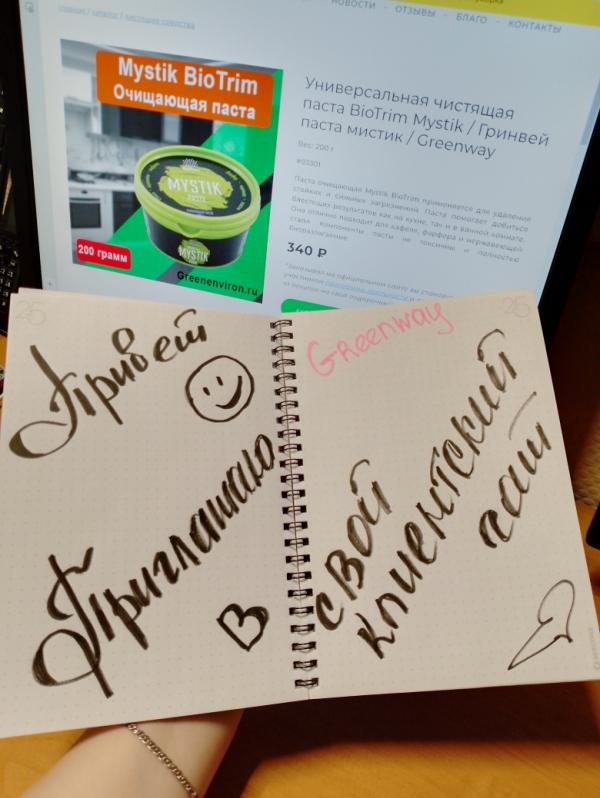 НОВОСТИ - ОТЗЫВЫ - БЛАГО - КОНТАКТЫ
Mystik BioTrim
Очищающая паста
MYSTIK
MYSTIK
200 грамм
Greenenviron.ru
Универсальная чистящая
паста BioTrim Mystik / Гринвей
паста мистик / Greenway
Вес: 200 г
#03301
Паста очищающая Mystik BioTrim применяется для удаления
стойких и сильных загрязнений. Паста помогает добиться
блестящих результатов как на кухне, так и в ванной комнате.
Она отлично подходит для кафеля, фарфора и нержавеющей
стали. Компоненты пасты не токсичны и полностью
биоразлагаемые.
340 ₽
25
Привет
Приглашаю
в
25
Greenway
свой
клиентский
чат